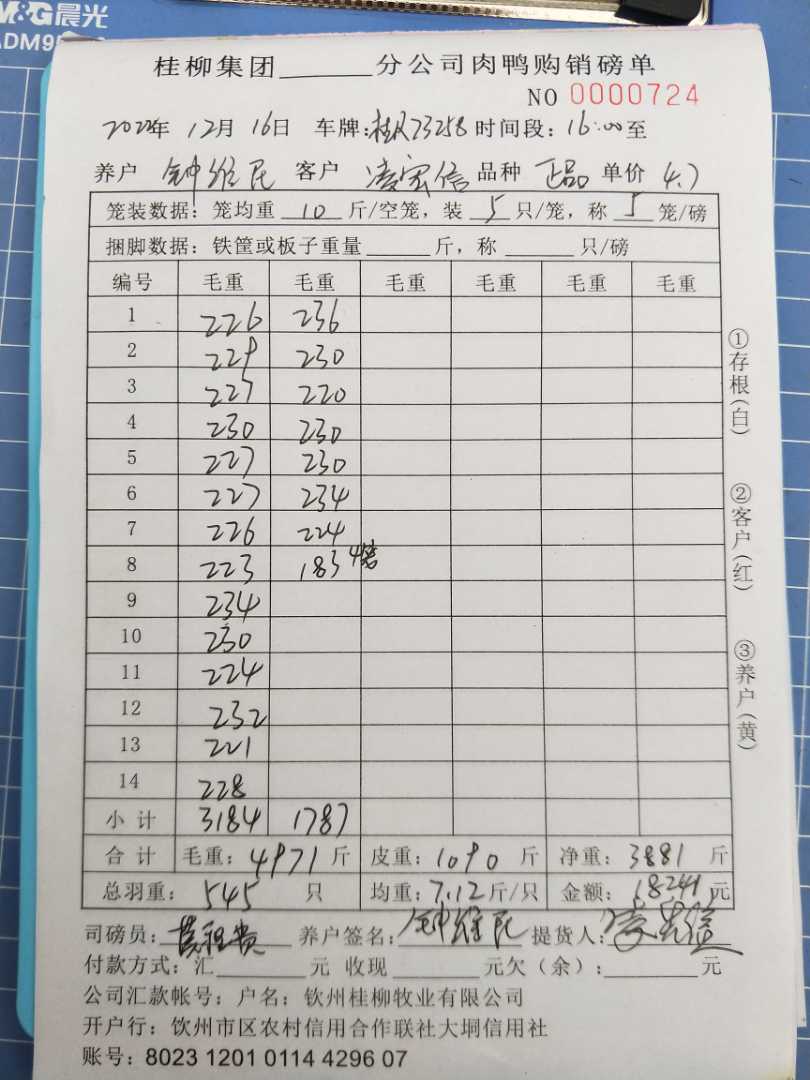 M&G晨光
桂柳集团______分公司肉鸭购销磅单
NO 0000724
2022年 12月 16日 车牌:桂 73258 时间段:16:00至
养户 钟维民 客户 凌宏信 品种 正品 单价 4.7
笼装数据: 笼均重 10 斤/空笼, 装 5 只/笼, 称 5 笼/磅
捆脚数据: 铁筐或板子重量______斤, 称______只/磅
编号 毛重 毛重 毛重 毛重 毛重 毛重
1 226 236
2 229 230
3 227 220
4 230 230
5 227 230
6 227 234
7 226 224
8 223 183 4笼
9 234
10 230
11 224
12 232
13 221
14 228
小计 3184 1787
合计 毛重: 4971 斤 皮重: 1090 斤 净重: 3881 斤
总羽重: 545 只 均重: 7.12斤/只 金额: 18241元
司磅员: 养户签名: 钟维民 提货人:
付款方式: 汇______元 收现______元欠(余):______元
公司汇款帐号: 户名: 钦州桂柳牧业有限公司
开户行: 饮州市区农村信用合作联社大垌信用社
账号: 8023 1201 0114 4296 07
①存根(白)
②客户(红)
③养户(黄)